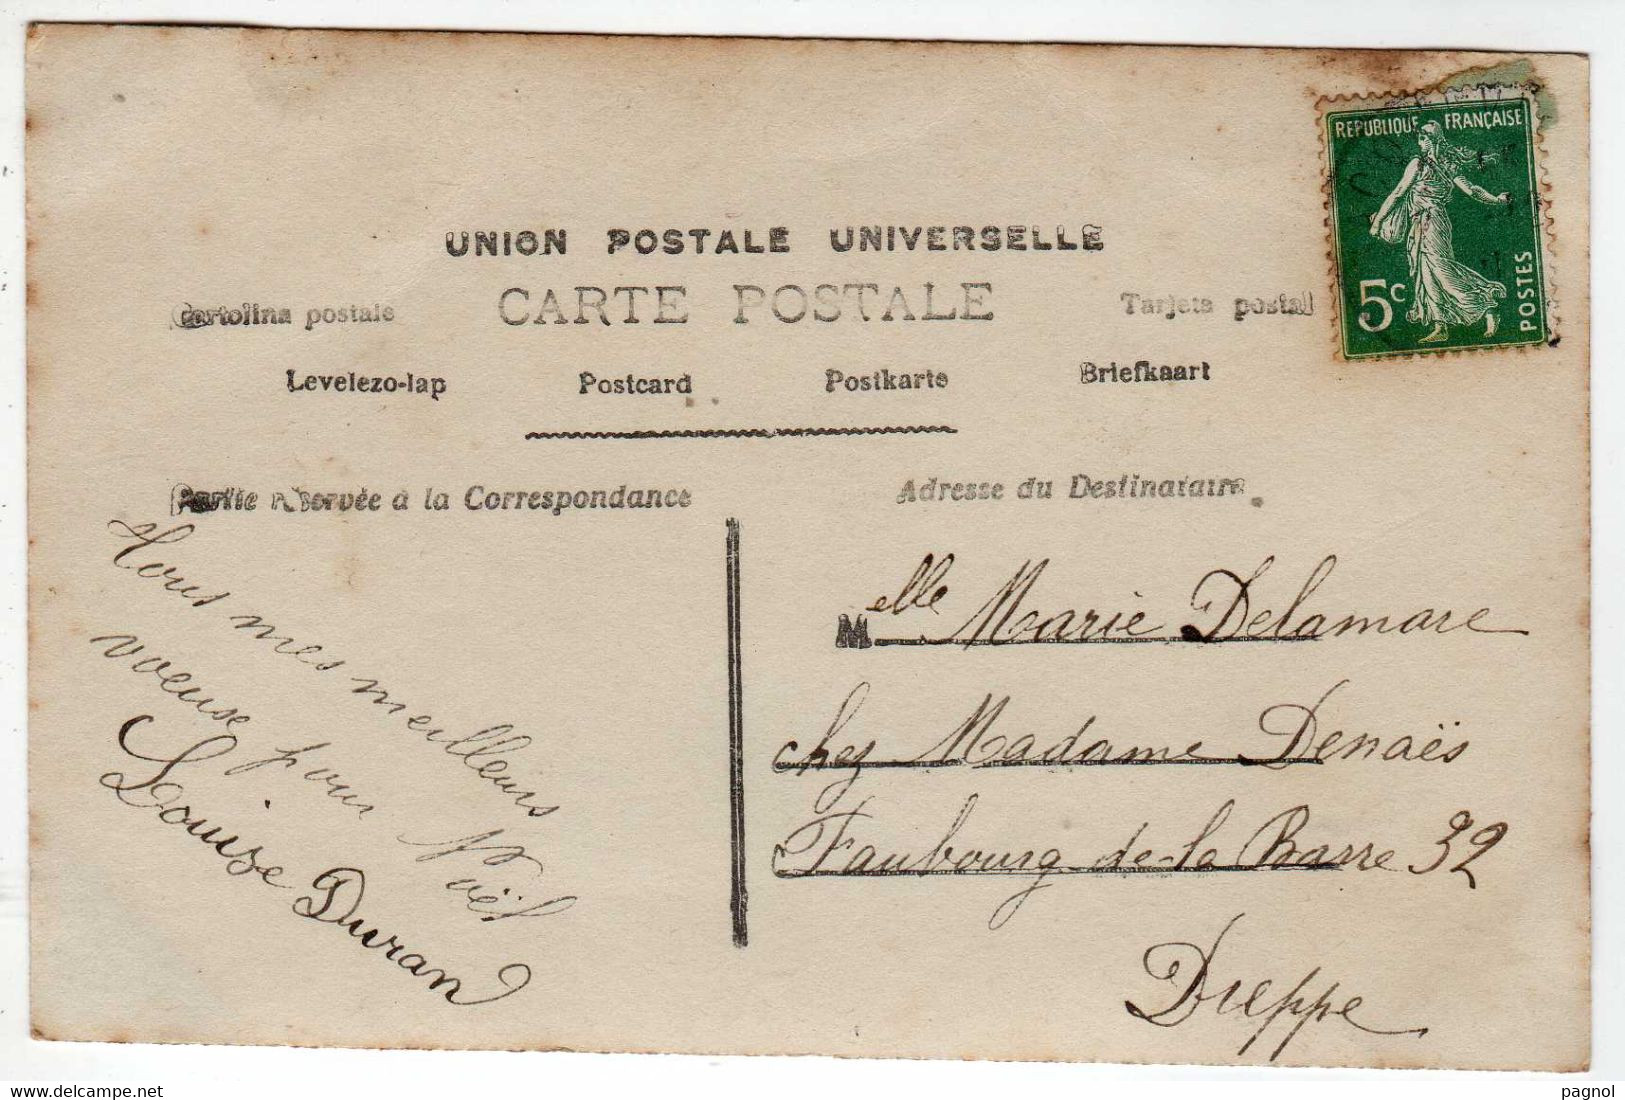 REPUBLIQUE FRANÇAISE
5c
POSTES
UNION POSTALE UNIVERSELLE
CARTE POSTALE
Cartolina postale
Tarjeta postal
Levelezo-lap
Postcard
Postkarte
Briefkaart
Partie réservée à la Correspondance
Adresse du Destinataire
Tous mes meilleurs
voeuse pour Noël
Louise Duran
Melle Marie Delamare
chez Madame Denaës
Faubourg de-la Barre 32
Dieppe
www.delcampe.net
pagnol